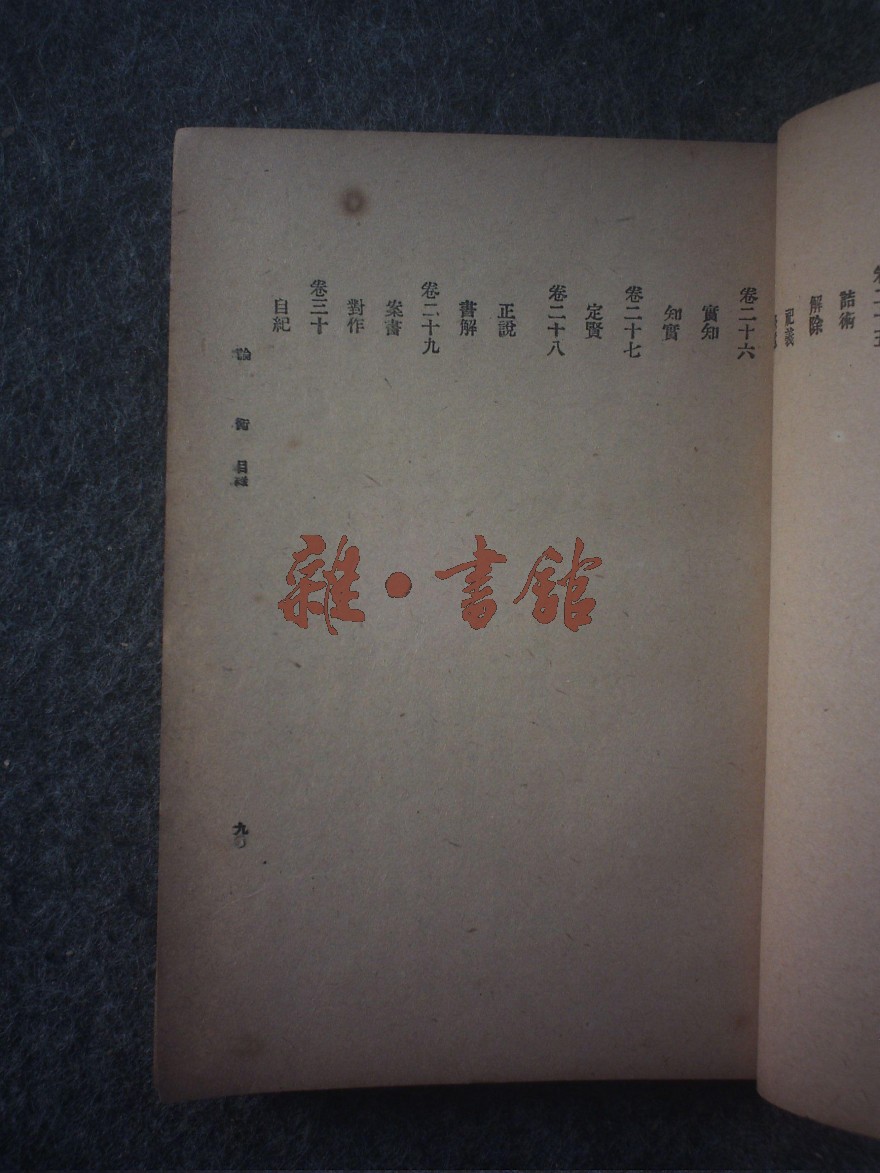 詰術
解除
祀義
卷二十六
實知
知實
卷二十七
定賢
卷二十八
正說
書解
卷二十九
案書
對作
卷三十
自紀
論衡 目錄
九
雜·書館